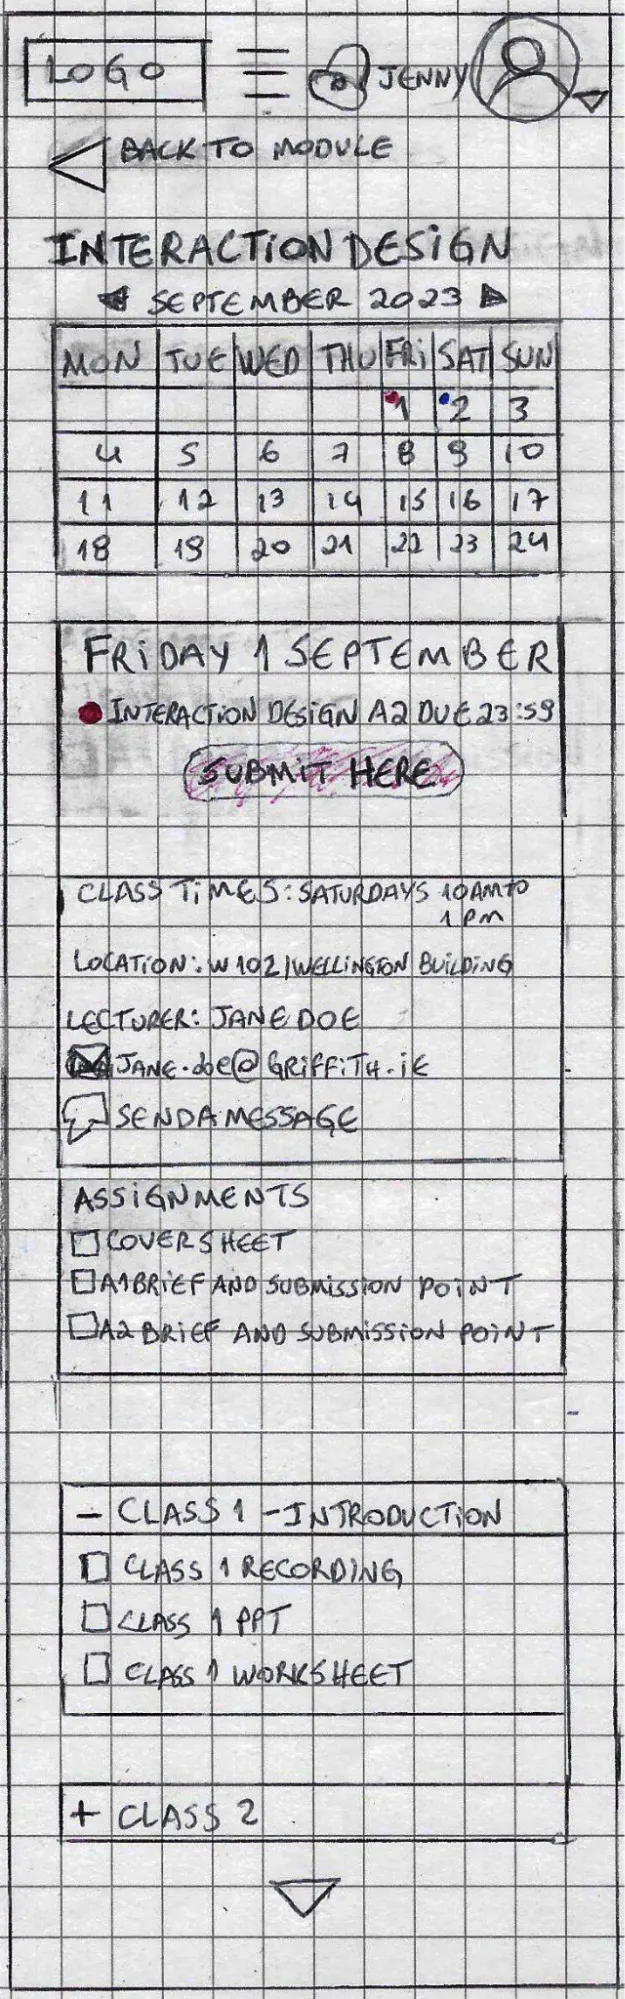 LOGO JENNY
BACK TO MODULE
INTERACTION DESIGN
SEPTEMBER 2023
MON TUE WED THU FRI SAT SUN
1 2 3
4 5 6 7 8 9 10
11 12 13 14 15 16 17
18 19 20 21 22 23 24
FRIDAY 1 SEPTEMBER
INTERACTION DESIGN A2 DUE 23:59
SUBMIT HERE
CLASS TIMES: SATURDAYS 10AM TO
1 PM
LOCATION: W102/WELLINGTON BUILDING
LECTURER: JANE DOE
JANE.doe@GRIFFITH.iE
SEND A MESSAGE
ASSIGNMENTS
COVER SHEET
A1 BRIEF AND SUBMISSION POINT
A2 BRIEF AND SUBMISSION POINT
- CLASS 1 - INTRODUCTION
CLASS 1 RECORDING
CLASS 1 PPT
CLASS 1 WORKSHEET
+ CLASS 2